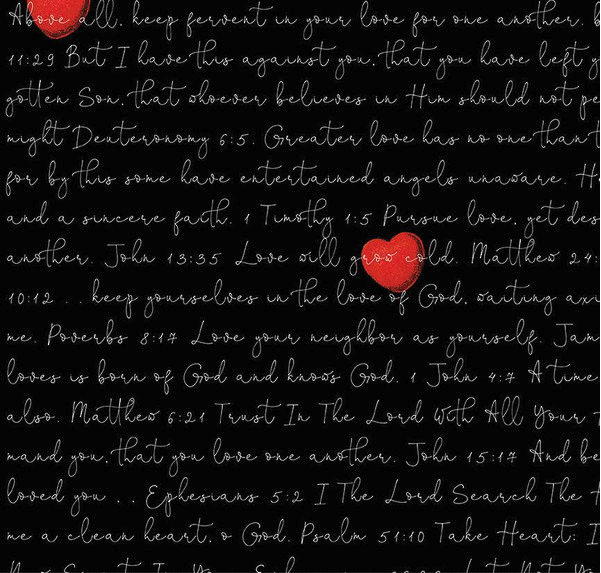 Above all, keep fervent in your love for one another. b
11:29 But I have this against you, that you have left y
gotten Son, that whoever believes in Him should not pe
might Deuteronomy 6:5. Greater love has no one than t
for by this some have entertained angels unaware. H
and a sincere faith. 1 Timothy 1:5 Pursue love, yet des
another. John 13:35 Love will grow cold. Matthew 24:
10:12 . . keep yourselves in the love of God, waiting axi
me. Poverbs 8:17 Love your neighbor as yourself. Jam
loves is born of God and knows God. 1 John 4:7 A time
also. Matthew 6:21 Trust In The Lord With All Your
mand you, that you love one another. John 15:17 And be
loved you . . Ephesians 5:2 I The Lord Search The H
me a clean heart, o God. Psalm 51:10 Take Heart: I